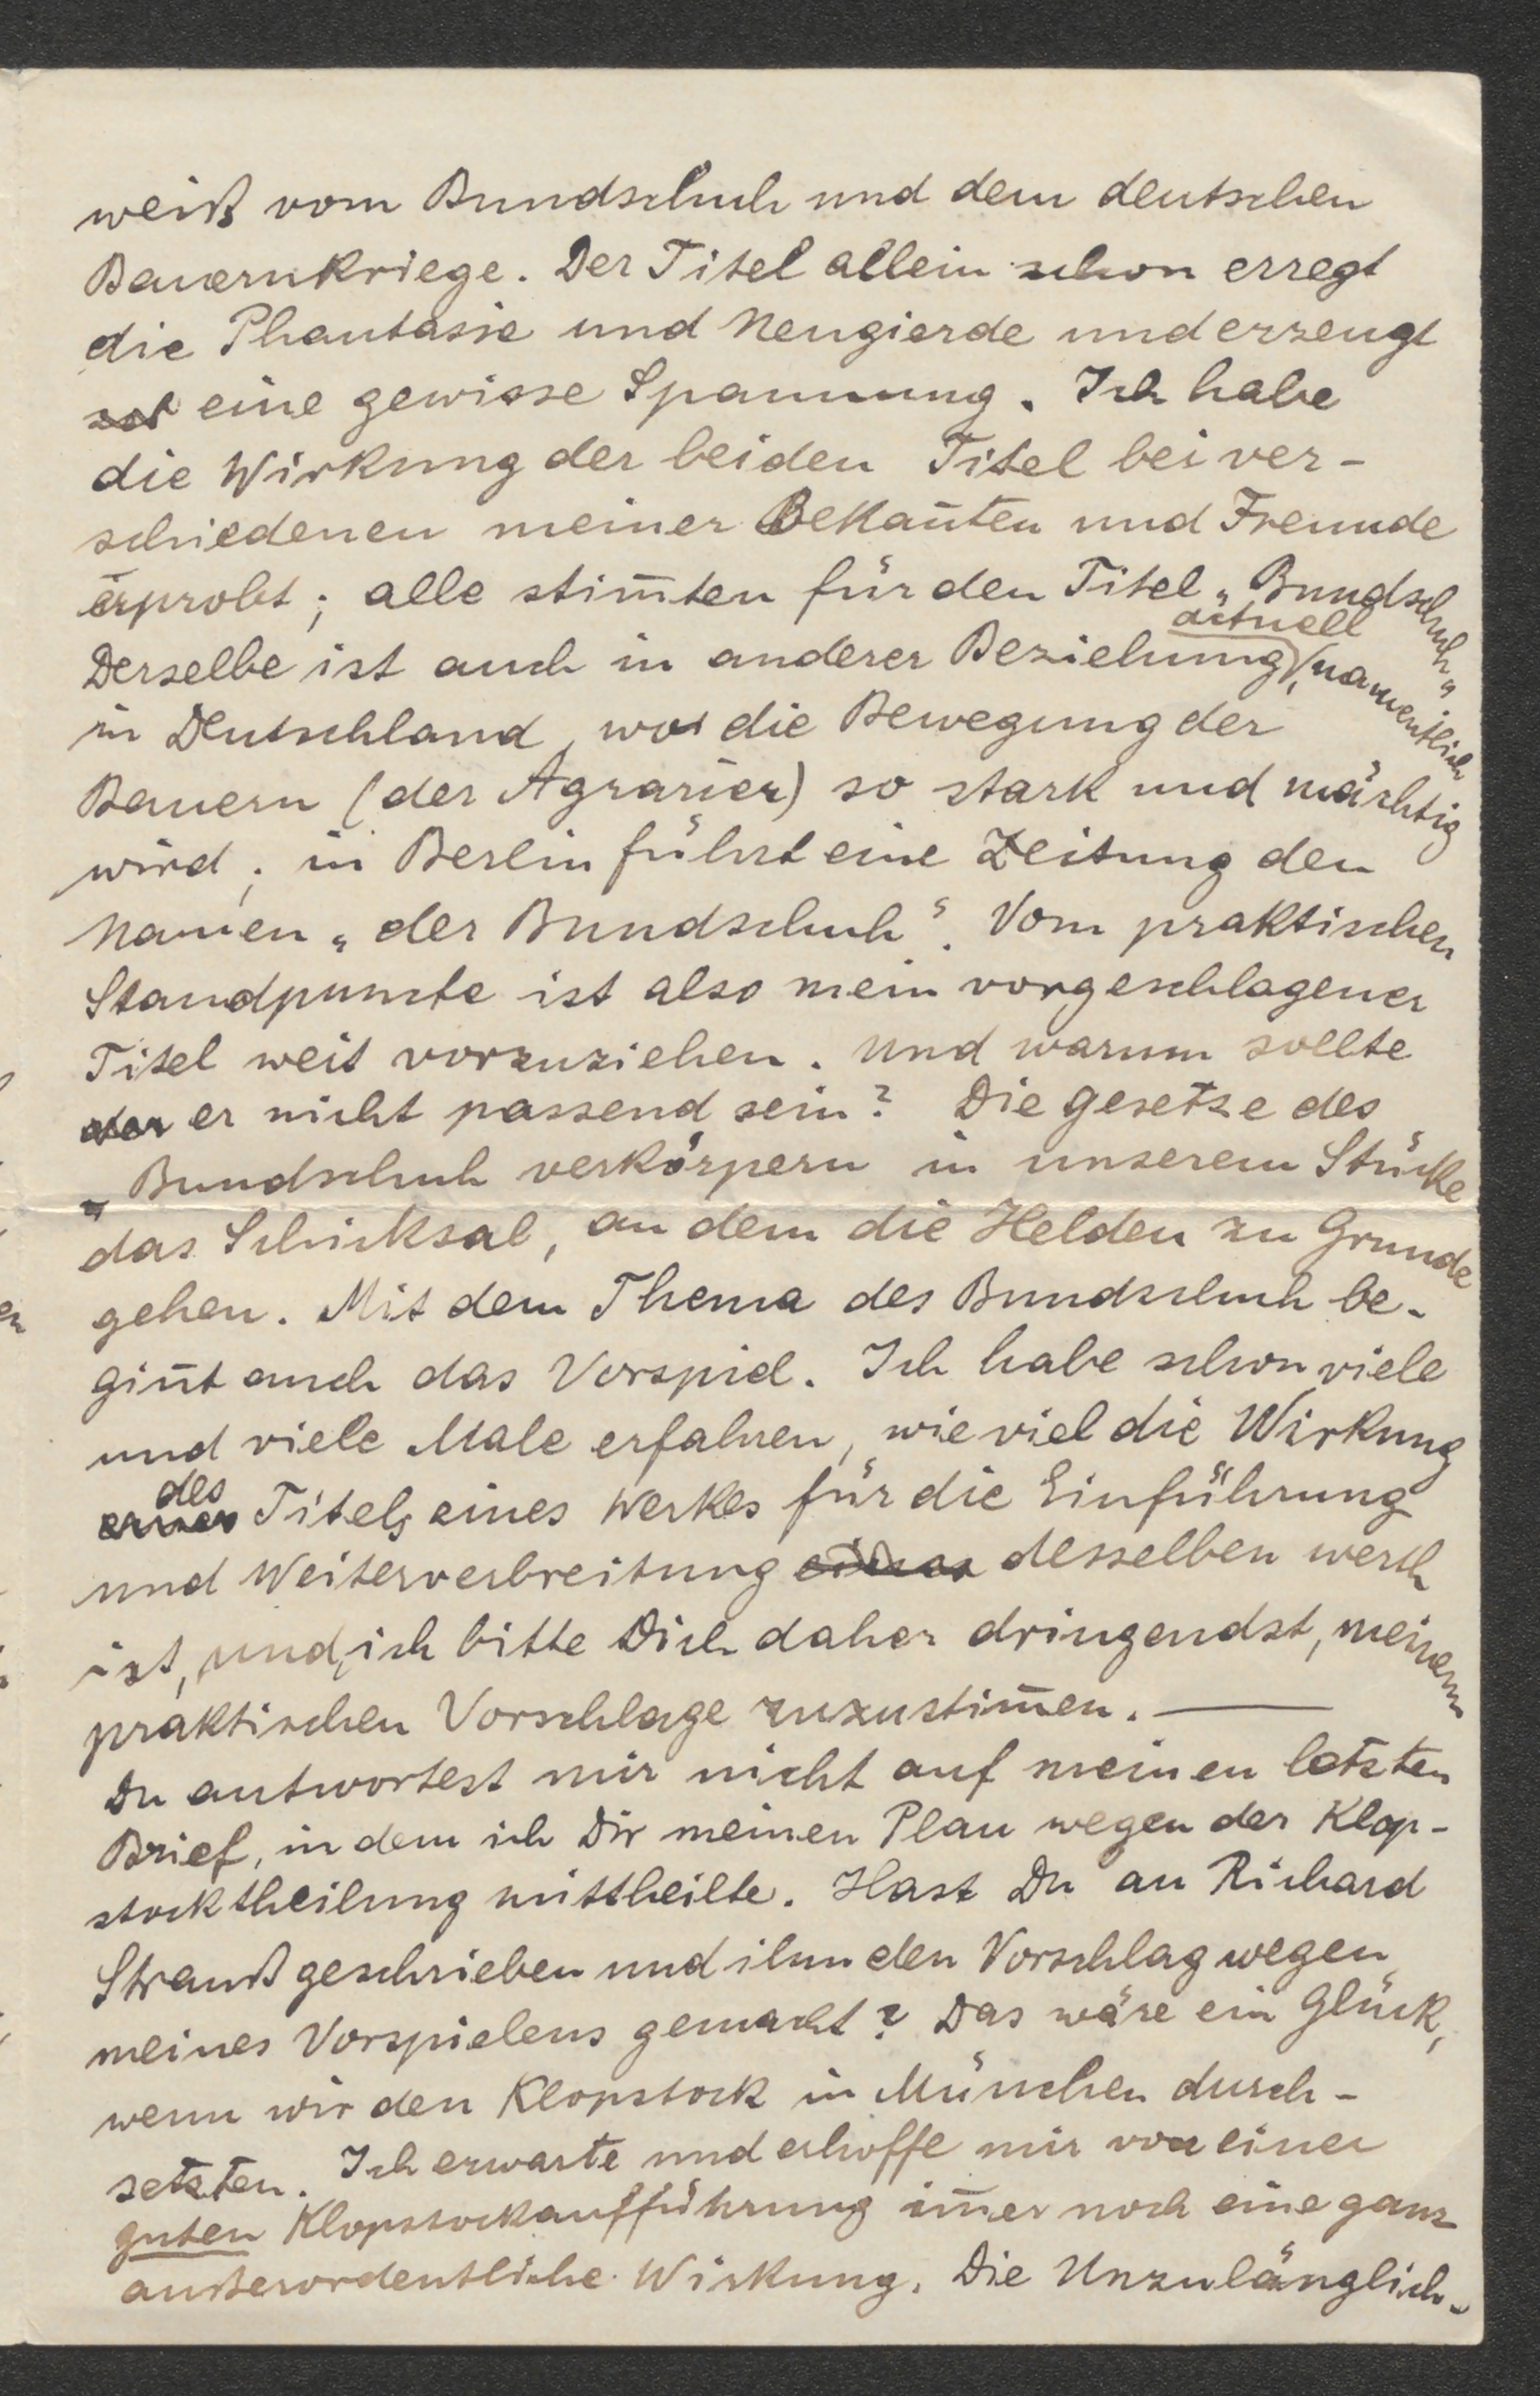 weiß vom Bundschuh und dem deutschen
Bauernkriege. Der Titel allein schon erregt
die Phantasie und Neugierde und erzeugt
eine gewisse Spannung. Ich habe
die Wirkung der beiden Titel bei ver-
schiedenen meiner Bekañten und Freunde
erprobt; alle stim̄ten für den Titel „Bundschuh“
Derselbe ist auch in anderer Beziehung actuell, namentlich
in Deutschland, wo die Bewegung der
Bauern (der Agrarier) so stark und mächtig
wird; in Berlin führt eine Zeitung den
Namen „der Bundschuh“. Vom praktischen
Standpuncte ist also mein vorgeschlagener
Titel weit vorzuziehen. Und warum sollte
er nicht passend sein? Die Gesetze des
„Bundschuh verkörpern in unserem Stücke
das Schicksal, an dem die Helden zu Grunde
gehen. Mit dem Thema des Bundschuh be-
giñt auch das Vorspiel. Ich habe schon viele
und viele Male erfahren, wie viel die Wirkung
des Titels eines Werkes für die Einführung
und Weiterverbreitung desselben werth
ist, und ich bitte Dich daher dringendst, meinem
praktischen Vorschlage zuzustim̄en. —
Du antwortest mir nicht auf meinen letzten
Brief, in dem ich Dir meinen Plan wegen der Klop-
stocktheilung mittheilte. Hast Du an Richard
Strauß geschrieben und ihm den Vorschlag wegen
meines Vorspielens gemacht? Das wäre ein Glück,
wenn wir den Klopstock in München durch-
setzten. Ich erwarte und erhoffe mir von einer
guten Klopstockaufführung im̄er noch eine ganz
außerordentliche Wirkung. Die Unzulänglich-